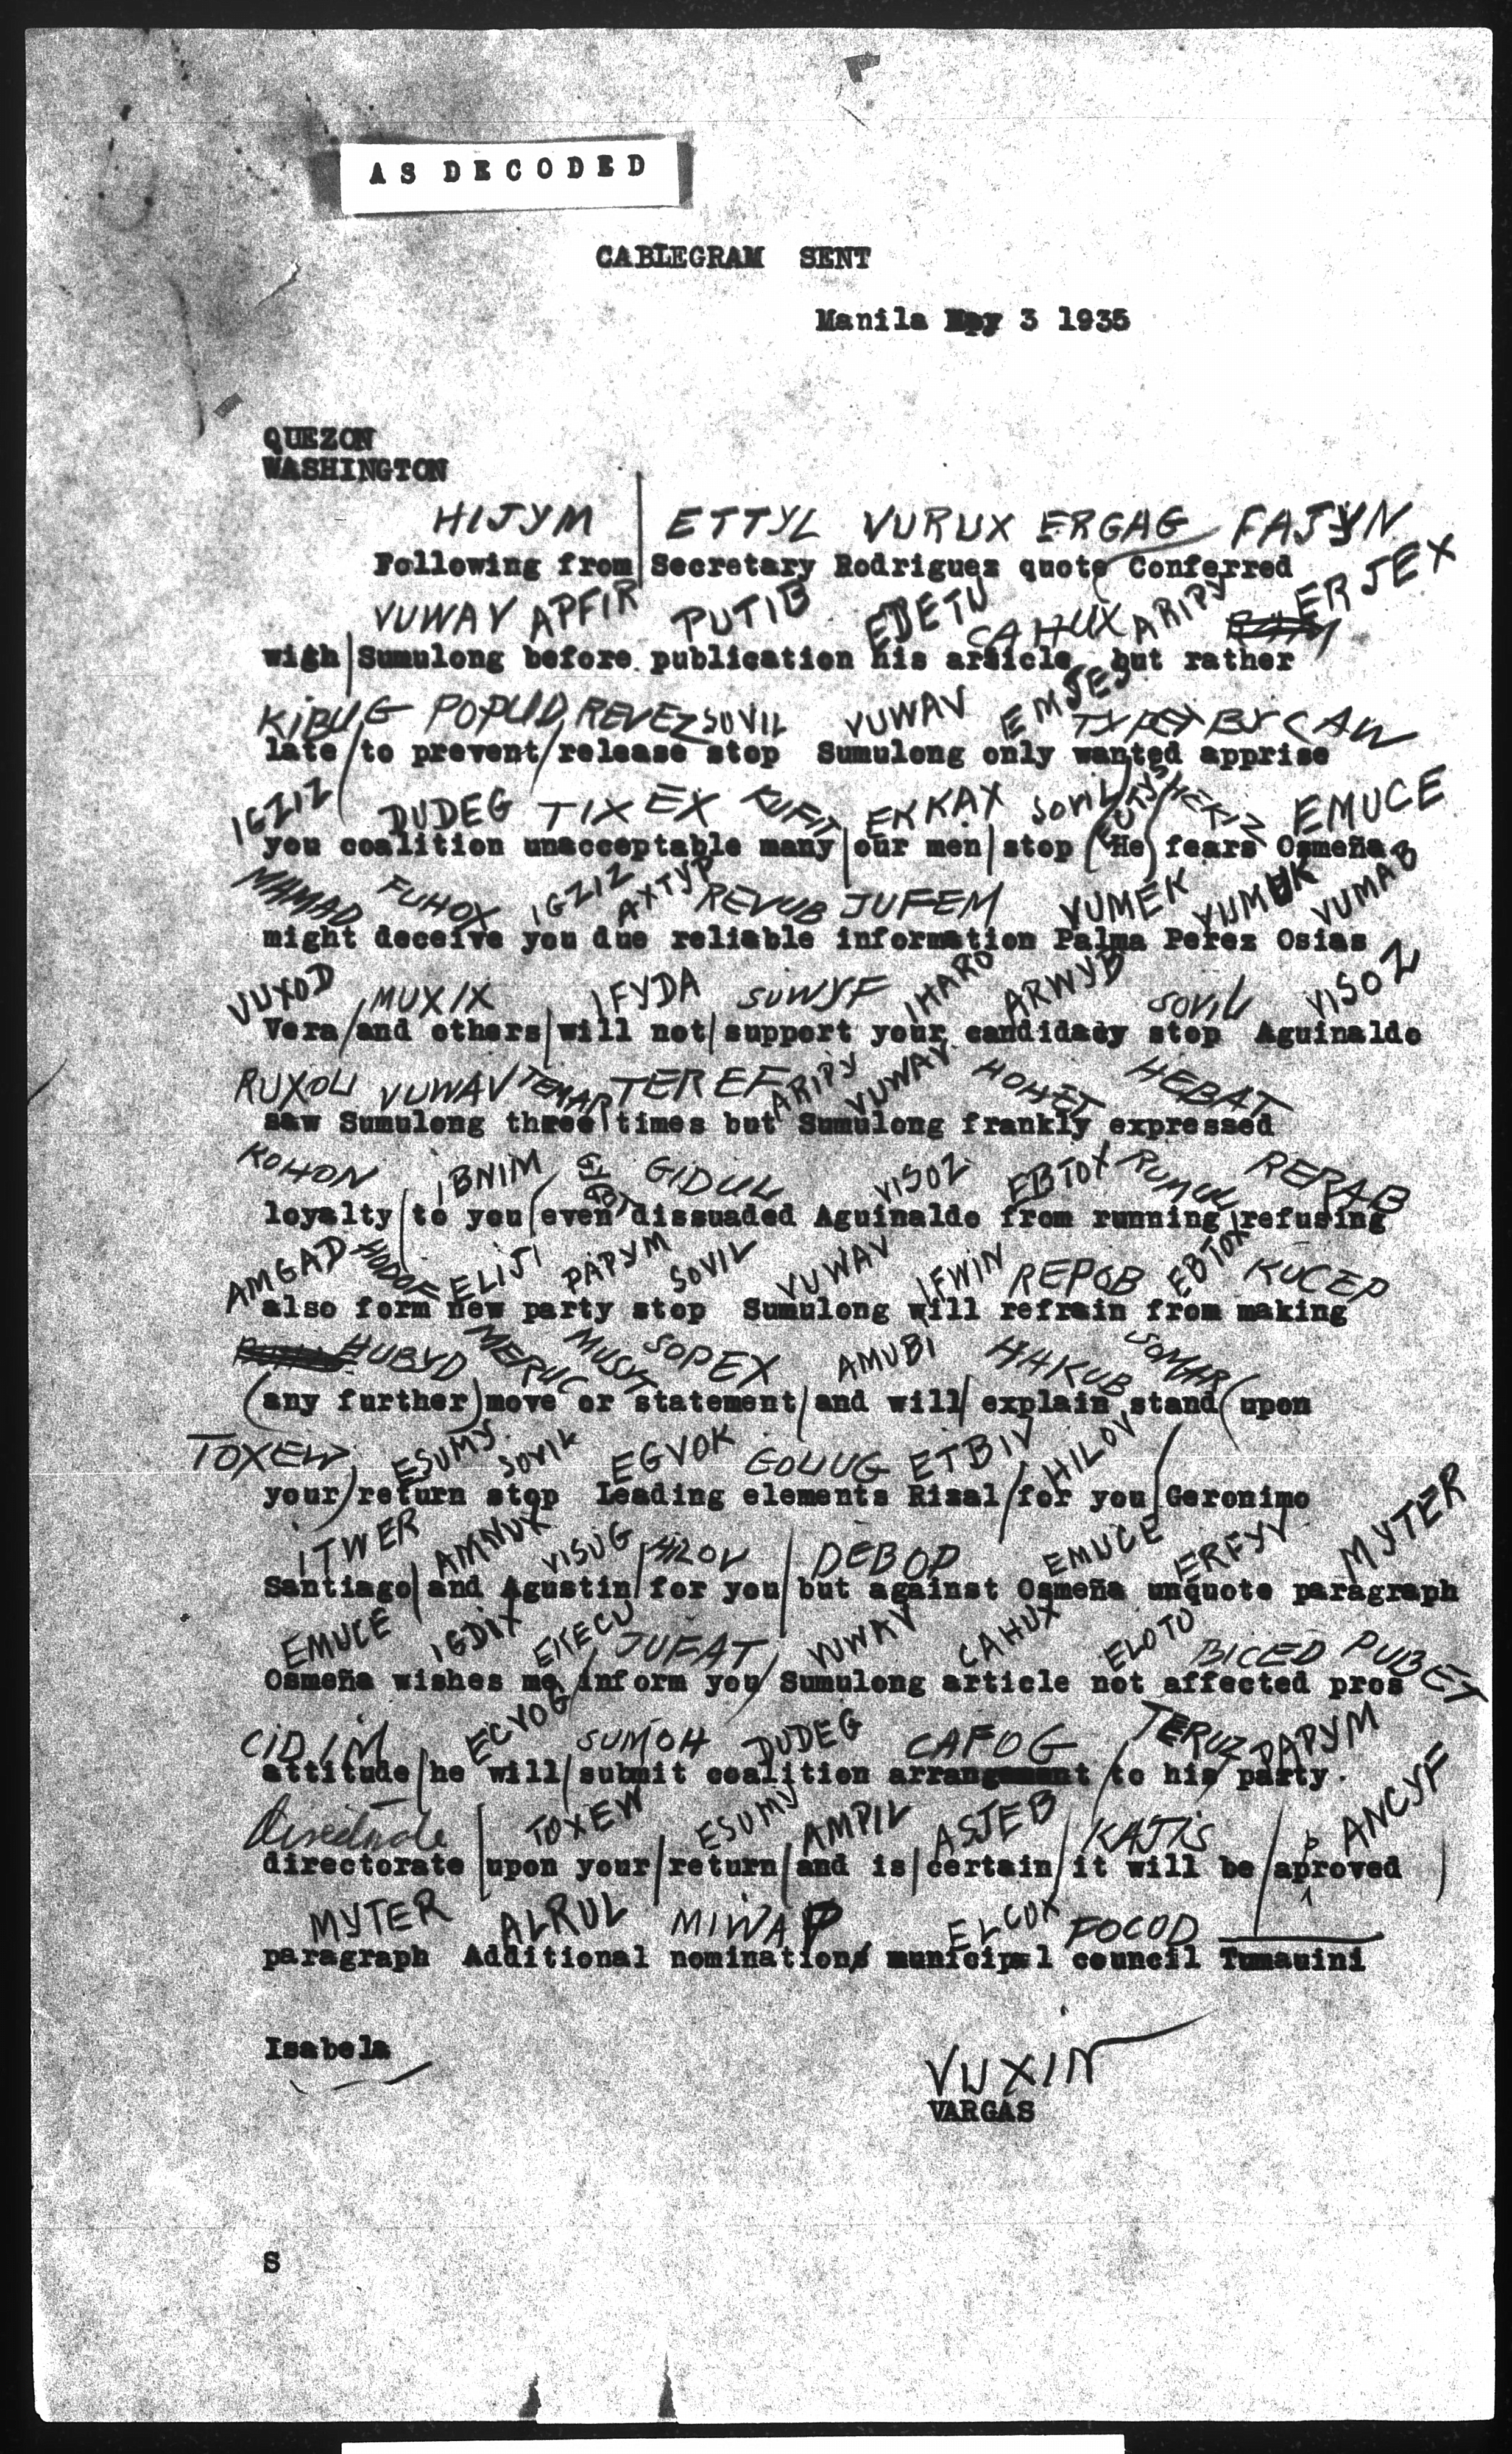 AS DECODED
CABLEGRAM SENT
Manila May 3 1935
QUEZON
WASHINGTON
HIJYM ETTYL VURUX ERGAG FAJYN
Following from Secretary Rodriguez quote Conferred
VUWAV APFIR PUTIB EDETU CAHUX ARIPY ERJEX
with Sumulong before publication his article but rather
KIBUG POPUD REVEZ SOVIL VUWAV EMJES BYCAW
late to prevent release stop Sumulong only wanted apprise
IGZIZ DUDEG TIXEX KUFIT EKKAX SOVIL HEKIZ EMUCE
you coalition unacceptable many our men stop He fears Osmeña
MAMAD FUHOX IGZIZ AXTYP REVUB JUFEM VUMEK VUMUK VUMAB
might deceive you due reliable information Palma Perez Osias
VUXOD MUXIX IFYDA SUWYF IHARO ARWYB SOVIL VISOZ
Vera and others will not support your candidacy stop Aguinaldo
RUXOU VUWAV TEMAP TEREF ARIPY VUWAV HOHET HEBAT
saw Sumulong three times but Sumulong frankly expressed
KOHON IBNIM GIDUL VISOZ EBTOX RUMUL RERAB
loyalty to you even dissuaded Aguinaldo from running refusing
AMGAD HODOF ELIJI PAPYM SOVIL VUWAV IFWIN REPOB EBTOX KUCEP
also form new party stop Sumulong will refrain from making
HUBYD MERUC MUSYT SOPEX AMUBI HAKUB SOMAR
any further move or statement and will explain stand upon
TOXEW ESUMY SOVIL EGVOK GOLUG ETBIV HILOV
your return stop Leading elements Rizal for you Geronimo
ITWER AMNUX VISUG HILOV DEBOP EMUCE ERFYV MYTER
Santiago and Agustin for you but against Osmeña unquote paragraph
EMUCE IGDIX EKECU JUFAT VUWAV CAHUX ELOTU BICED PUBET
Osmeña wishes me inform you Sumulong article not affected pros
CIDIM ECVOG SUMOH DUDEG CAFOG TERUZ PAPYM
attitude he will submit coalition arrangement to his party
directorate TOXEW ESUMY AMPIL ASJEB KAJIS p ANCYF
directorate upon your return and is certain it will be aproved
MYTER ALRUL MIWAP ELCOX FOCOD
paragraph Additional nominations municipal council Tumauini
Isabela
VUXIN
VARGAS
S